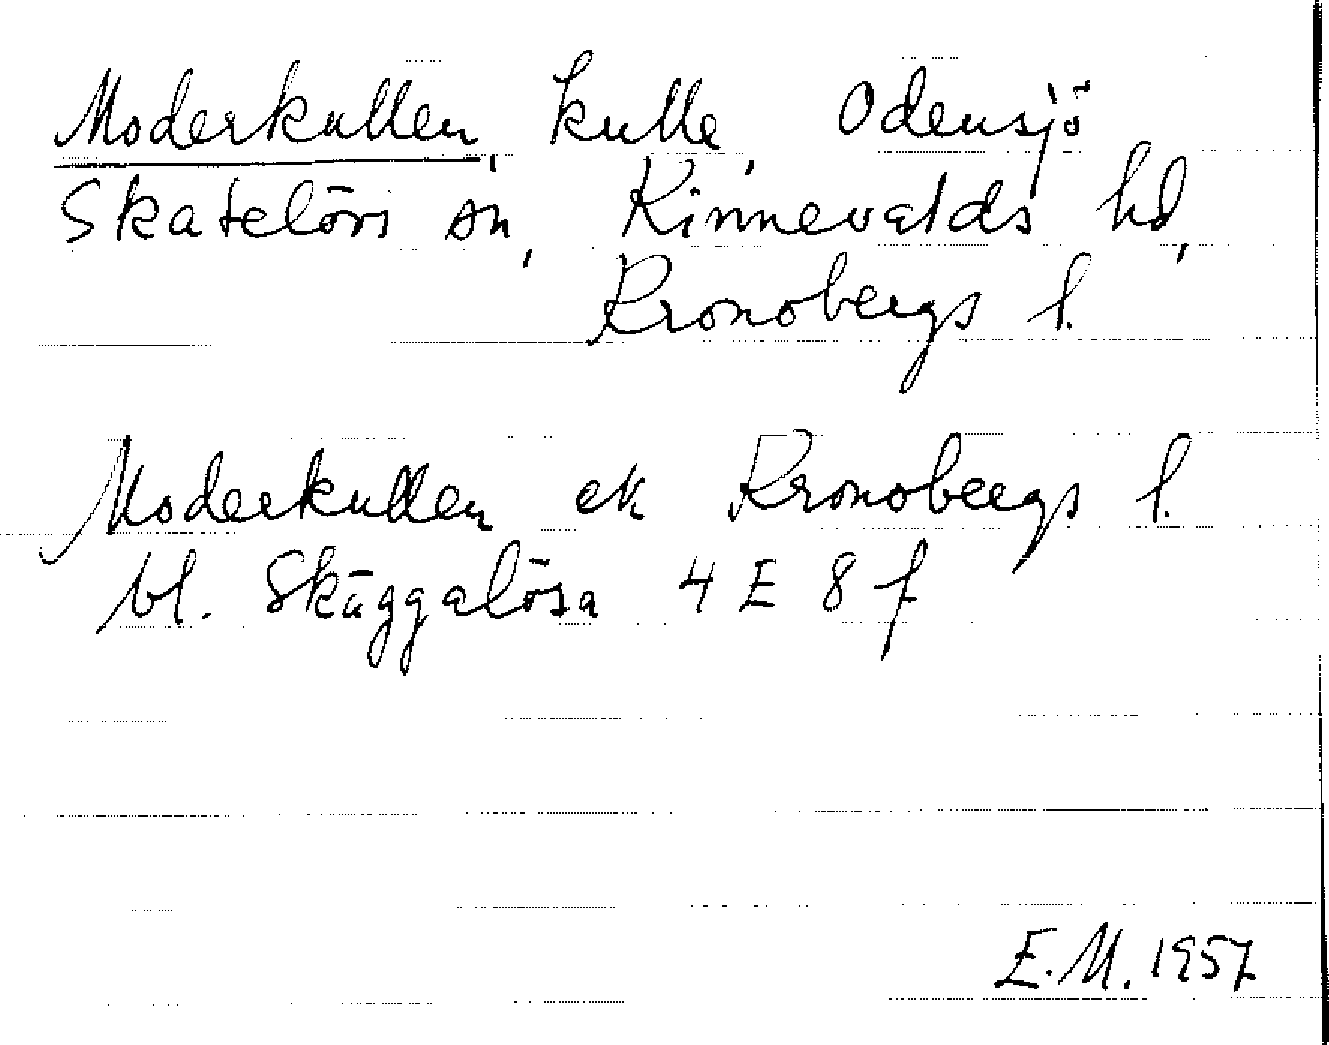 Moderkullen, kulle, Odensjö
Skatelövs sn, Kinnevalds hd,
Kronobergs l.
Moderkullen ek Kronobergs l.
bl. Skäggalösa 4 E 8 f
E.M. 1957